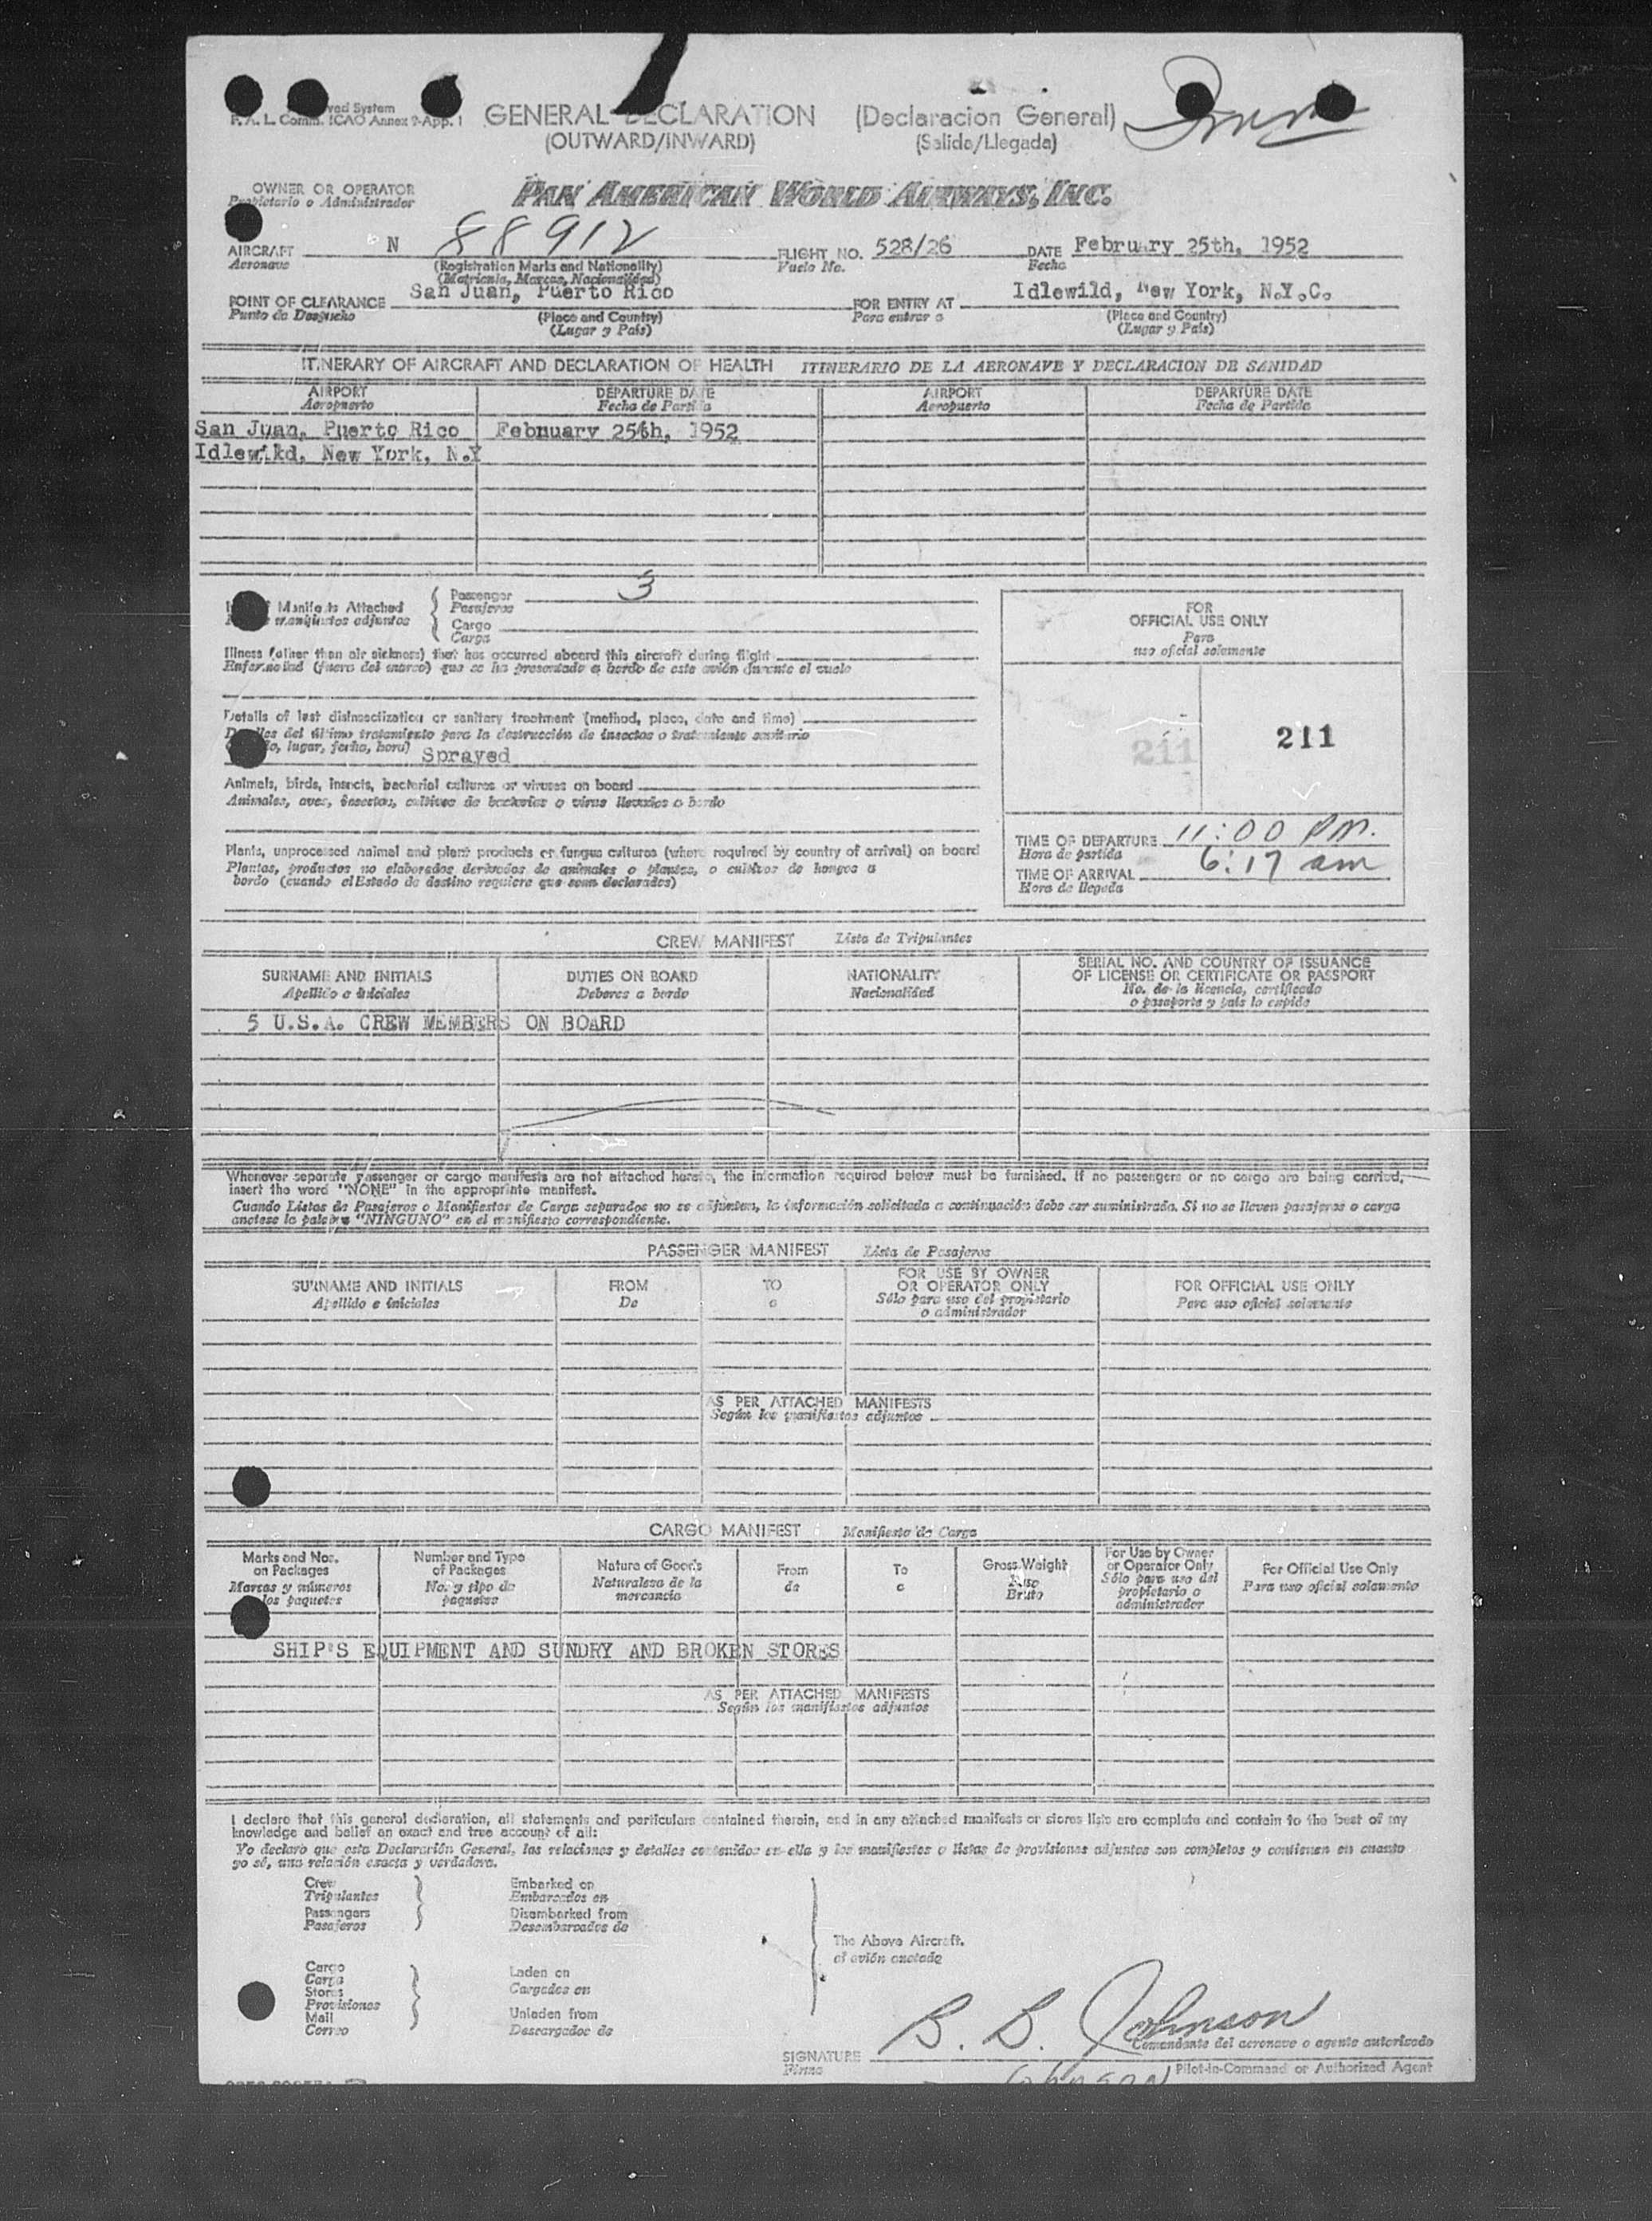 ved System
F. A. L. Comm. ICAO Annex 9-App. 1
GENERAL DECLARATION (Declaracion General)
(OUTWARD/INWARD) (Salida/Llegada)
OWNER OR OPERATOR PAN AMERICAN WORLD AIRWAYS, INC.
Propietario o Administrador
AIRCRAFT N 88912 FLIGHT NO. 528/26 DATE February 25th, 1952
Aeronave (Registration Marks and Nationality) Vuelo No. Fecha
(Matricula, Marcas, Nacionalidad)
POINT OF CLEARANCE San Juan, Puerto Rico FOR ENTRY AT Idlewild, New York, N.Y.C.
Punto de Despacho (Place and Country) Para entrar a (Place and Country)
(Lugar y País) (Lugar y País)
ITINERARY OF AIRCRAFT AND DECLARATION OF HEALTH ITINERARIO DE LA AERONAVE Y DECLARACION DE SANIDAD
AIRPORT DEPARTURE DATE AIRPORT DEPARTURE DATE
Aeropuerto Fecha de Partida Aeropuerto Fecha de Partida
San Juan, Puerto Rico February 25th, 1952
Idlewikd, New York, N.Y
Manifests Attached
manifiestos adjuntos
Passenger 3
Pasajeros
Cargo
Carga
Illness (other than air sickness) that has occurred aboard this aircraft during flight
Enfermedad (fuera del mareo) que se ha presentado a bordo de este avión durante el vuelo
Details of last disinsectization or sanitary treatment (method, place, date and time)
Detalles del último tratamiento para la destrucción de insectos o tratamiento sanitario
lugar, fecha, hora) Sprayed
Animals, birds, insects, bacterial cultures or viruses on board
Animales, aves, insectos, cultivos de bacterias o virus llevados a bordo
Plants, unprocessed animal and plant products or fungus cultures (where required by country of arrival) on board
Plantas, productos no elaborados derivados de animales o plantas, o cultivos de hongos a
bordo (cuando el Estado de destino requiere que sean declarados)
FOR
OFFICIAL USE ONLY
Para
uso oficial solamente
211 211
TIME OF DEPARTURE 11:00 PM.
Hora de partida
TIME OF ARRIVAL 6:17 am
Hora de llegada
CREW MANIFEST Lista de Tripulantes
SURNAME AND INITIALS DUTIES ON BOARD NATIONALITY SERIAL NO. AND COUNTRY OF ISSUANCE
OF LICENSE OR CERTIFICATE OR PASSPORT
Apellido e iniciales Deberes a bordo Nacionalidad No. de la licencia, certificado
o pasaporte y país lo expide
5 U.S.A. CREW MEMBERS ON BOARD
Whenever separate passenger or cargo manifests are not attached hereto, the information required below must be furnished. If no passengers or no cargo are being carried,
insert the word "NONE" in the appropriate manifest.
Cuando Listas de Pasajeros o Manifiestos de Carga separados no se adjunten, la información solicitada a continuación debe ser suministrada. Si no se llevan pasajeros o carga
anótese la palabra "NINGUNO" en el manifiesto correspondiente.
PASSENGER MANIFEST Lista de Pasajeros
SURNAME AND INITIALS FROM TO FOR USE BY OWNER
OR OPERATOR ONLY FOR OFFICIAL USE ONLY
Apellido e iniciales De a Sólo para uso del propietario
o administrador Para uso oficial solamente
AS PER ATTACHED MANIFESTS
Según los manifiestos adjuntos
CARGO MANIFEST Manifiesto de Carga
Marks and Nos.
on Packages
Marcas y números
los paquetes
Number and Type
of Packages
No. y tipo de
paquetes
Nature of Goods
Naturaleza de la
mercancía
From
de
To
a
Gross Weight
Peso
Bruto
For Use by Owner
or Operator Only
Sólo para uso del
propietario o
administrador
For Official Use Only
Para uso oficial solamente
SHIP'S EQUIPMENT AND SUNDRY AND BROKEN STORES
AS PER ATTACHED MANIFESTS
Según los manifiestos adjuntos
I declare that this general declaration, all statements and particulars contained therein, and in any attached manifests or stores lists are complete and contain to the best of my
knowledge and belief an exact and true account of all:
Yo declaro que esta Declaración General, las relaciones y detalles contenidos en ella y los manifiestos o listas de provisiones adjuntos son completos y contienen en cuanto
yo sé, una relación exacta y verdadera.
Crew Embarked on
Tripulantes Embarcados en
Passengers Disembarked from
Pasajeros Desembarcados de
The Above Aircraft.
el avión anotado
Cargo
Carga
Stores
Provisiones
Mail
Correo
Laden on
Cargados en
Unladen from
Descargados de
SIGNATURE B. B. Johnson
Firma
Comandante del aeronave o agente autorizado
Pilot-in-Command or Authorized Agent